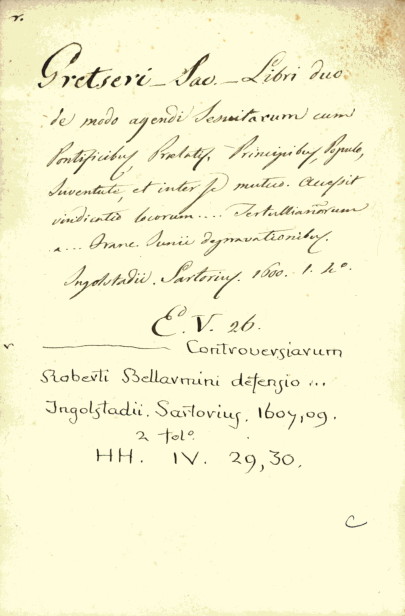 r.
Gretseri – Jac. – Libri duo
de modo agendi Jesuitarum cum
Pontificibus, Prælatis, Principibus, Populo,
Juventute, et inter se mutuo. Accessit
vindicatio locorum .... Tertullianorum
a ... Franc. Junii depravationibus.
Ingolstadii. Sartorius. 1600. 1. 4º.
Eᵈ. V. 26.
r ———— Controversiarum
Roberti Bellarmini defensio ...
Ingolstadii. Sartorius. 1607, 09.
2 folº.
HH. IV. 29, 30.
C